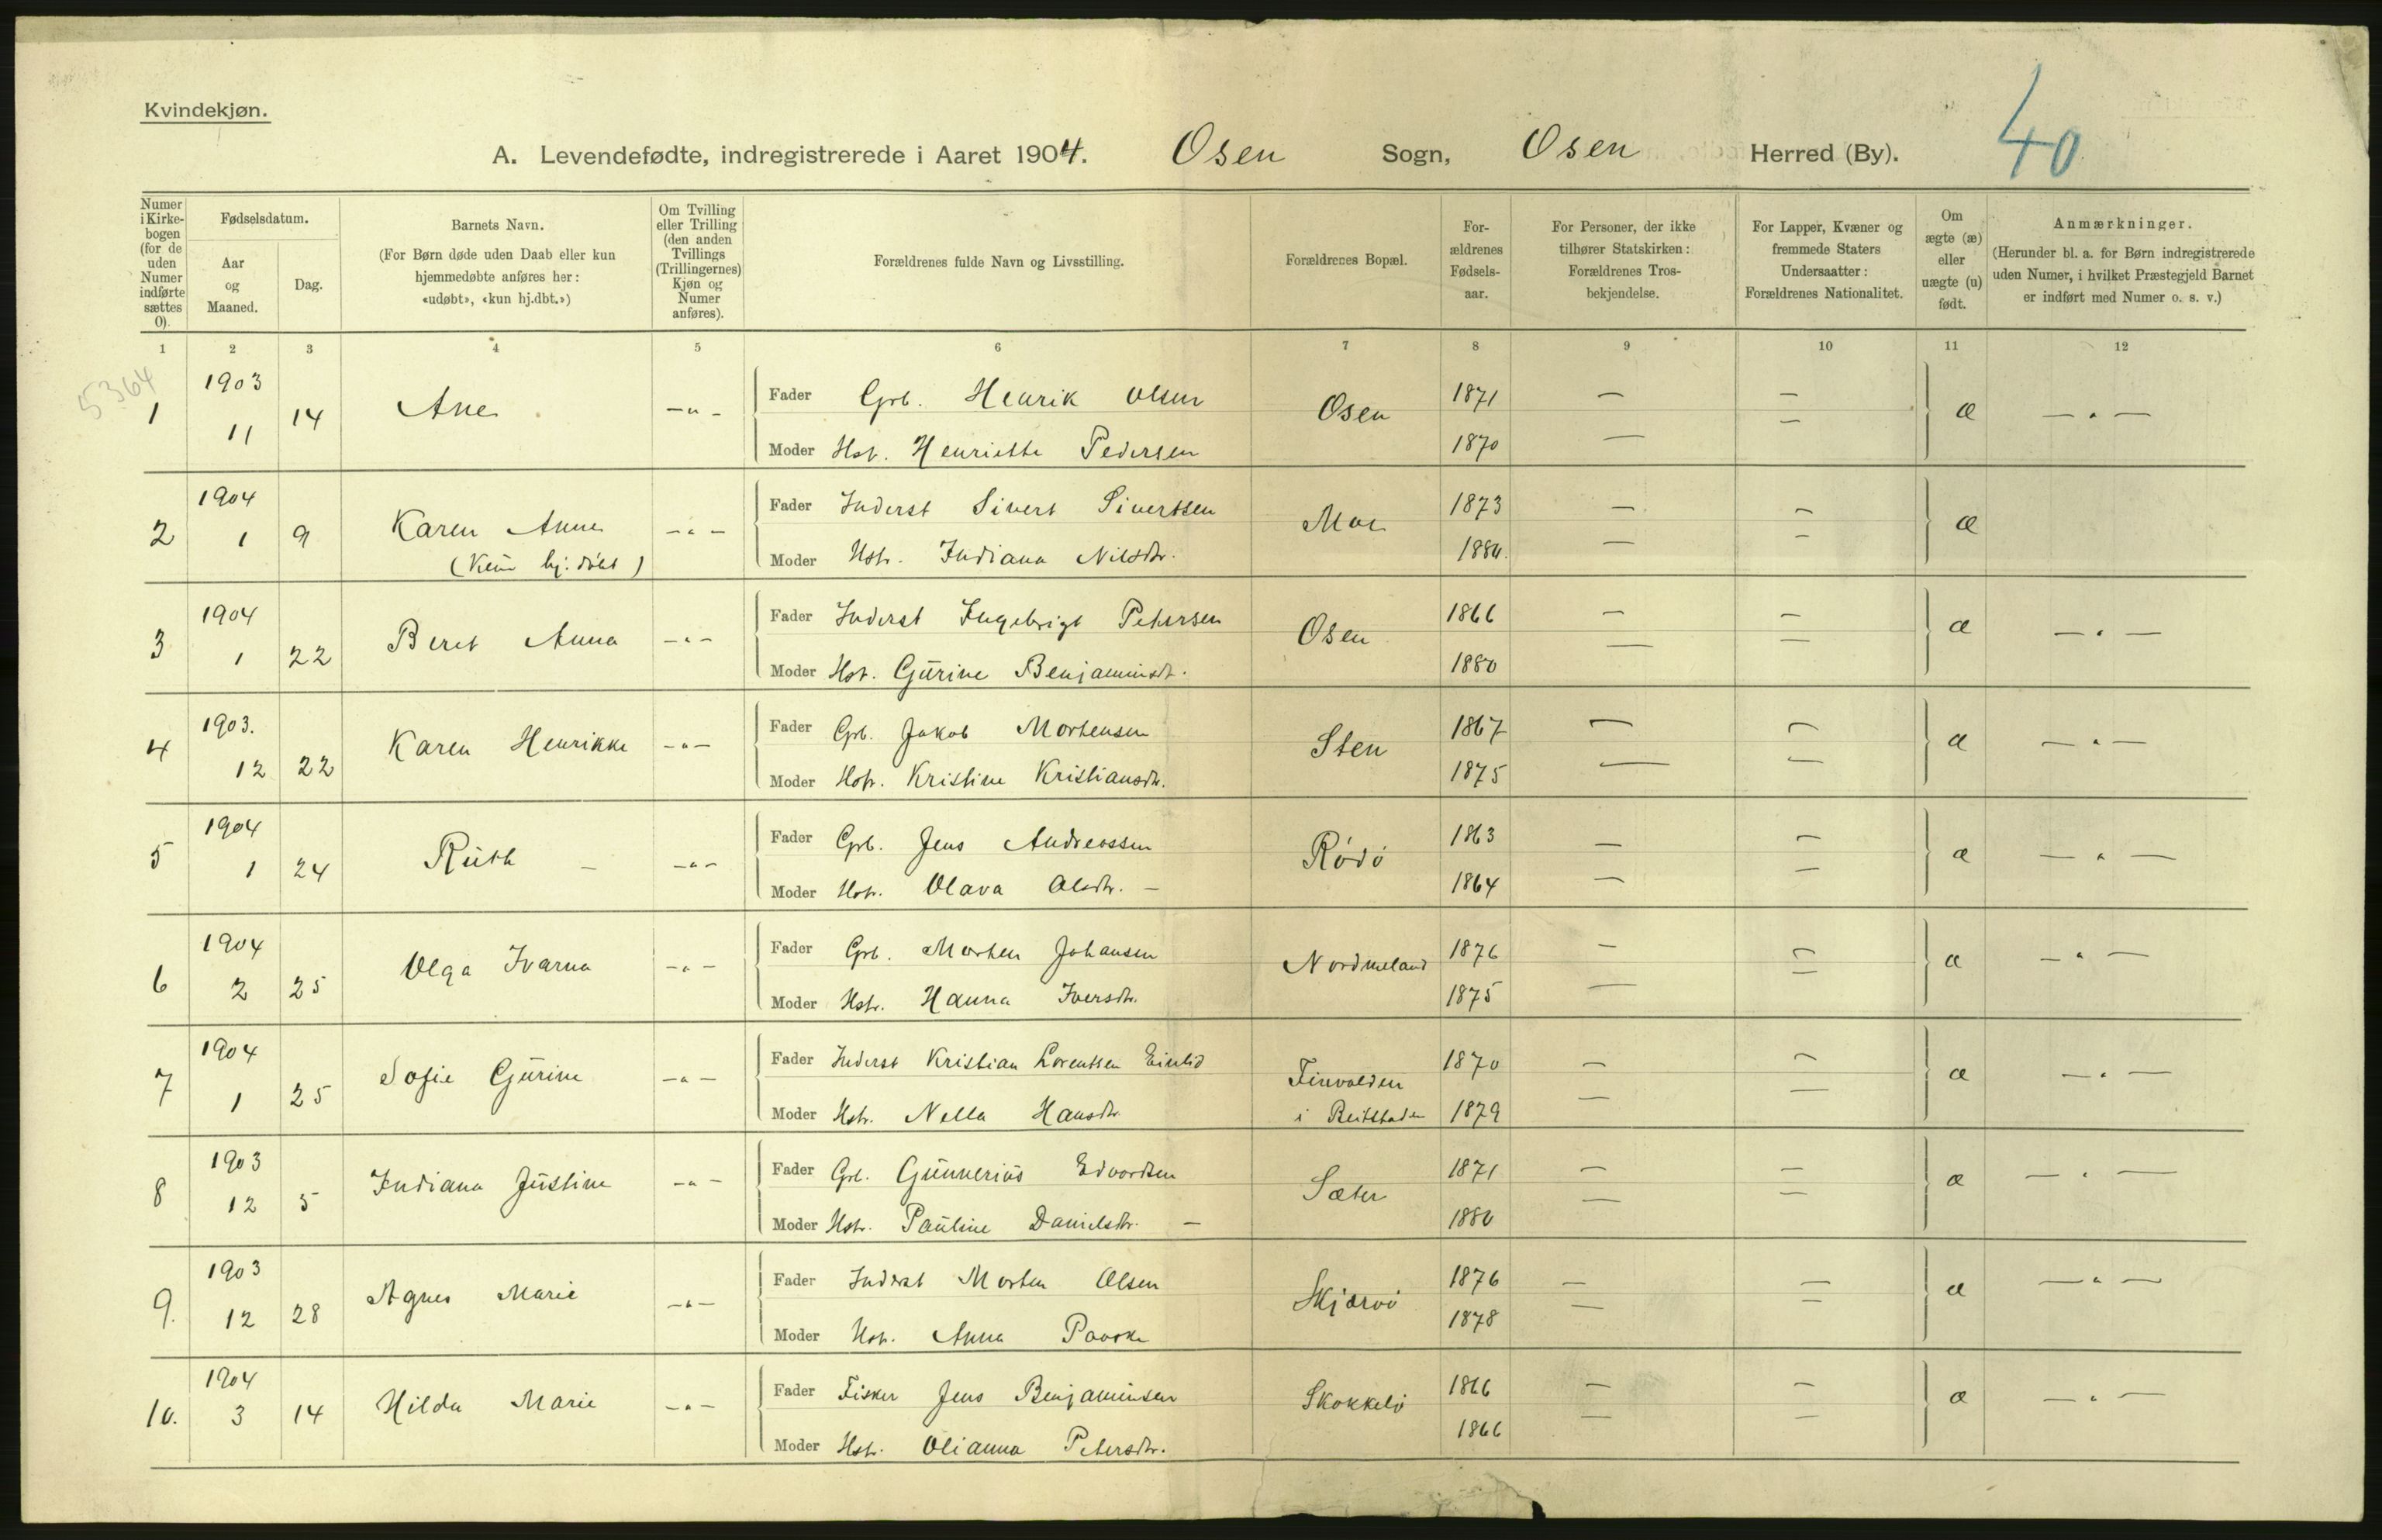 Kvindekjøn.
40
A. Levendefødte, indregistrerede i Aaret 1904. Osen Sogn, Osen Herred (By).
Numer i Kirkebogen (for de uden Numer indførte sættes 0).
Fødselsdatum.
Aar og Maaned.
Dag.
Barnets Navn.
(For Børn døde uden Daab eller kun hjemmedøbte anføres her: «udøbt», «kun hj.dbt.»)
Om Tvilling eller Trilling (den anden Tvillings (Trillingernes) Kjøn og Numer anføres).
Forældrenes fulde Navn og Livsstilling.
Forældrenes Bopæl.
Forældrenes Fødselsaar.
For Personer, der ikke tilhører Statskirken: Forældrenes Trosbekjendelse.
For Lapper, Kvæner og fremmede Staters Undersaatter: Forældrenes Nationalitet.
Om ægte (æ) eller uægte (u) født.
Anmærkninger.
(Herunder bl. a. for Børn indregistrerede uden Numer, i hvilket Præstegjeld Barnet er indført med Numer o. s. v.)
1 2 3 4 5 6 7 8 9 10 11 12
5364
1 1903 11 14 Ane -"- Fader Grb. Henrik Olsen Osen 1871 — — æ — " —
Moder Hst. Henriette Pedersen 1870 — —
2 1904 1 9 Karen Anne -"- Fader Inderst Sivert Sivertsen Moe 1873 — — æ
(Kun hj. döbt) Moder Hstr. Indiana Nilsdtr. — —
3 1904 1 22 Beret Anna -"- Fader Inderst Ingebrigt Petersen Osen 1866 — — æ — " —
Moder Hst. Gurine Benjaminsdt. 1880 — —
4 1903. 12 22 Karen Henrikke -"- Fader Grb. Jakob Mortensen Sten 1867 — — æ — " —
Moder Hstr. Kristine Kristiansdtr. 1875 — —
5 1904 1 24 Ruth — -"- Fader Grb. Jens Andreassen Rödö 1863 — — æ — " —
Moder Hstr. Olava Olsdtr. — 1864 — —
6 1904 2 25 Olga Ivarna -"- Fader Grb. Morten Johansen Nordmeland 1876 — — æ — " —
Moder Hstr. Hanna Iversdtr. 1875 — —
7 1904 1 25 Sofie Gurine -"- Fader Inderst Kristian Lorentsen 1870 — — æ — " —
Moder Hstr. Nella Hansdtr. i Beitstaden 1879 — —
8 1903 12 5 Indiana Justine -"- Fader Grb. Gunnerius Edvardsen Sæter 1871 — — æ — " —
Moder Hstr. Pauline Danielsdtr. — 1880 — —
9. 1903 12 28 Agnes Marie -"- Fader Inderst Morten Olsen Skjærvö 1876 — — æ — " —
Moder Hstr. Anna 1878 — —
10. 1904 3 14 Hilda Marie -"- Fader Fisker Jens Benjaminsen Skokkelö 1866 — — æ — " —
Moder Hstr. Olianna Petersdtr. 1866 — —